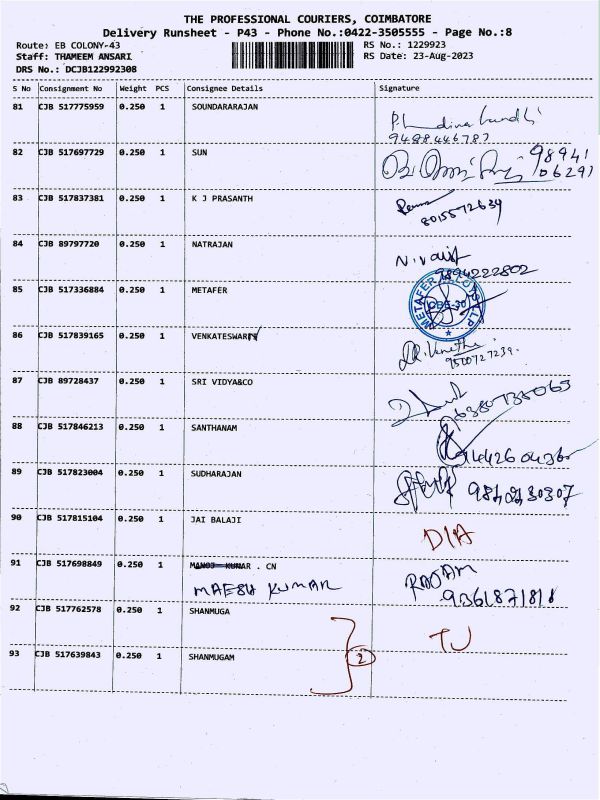 THE PROFESSIONAL COURIERS, COIMBATORE
Delivery Runsheet - P43 - Phone No.:0422-3505555 - Page No.:8
Route: EB COLONY-43 RS No.: 1229923
Staff: THAMEEM ANSARI RS Date: 23-Aug-2023
DRS No.: DCJB122992308
S No Consignment No Weight PCS Consignee Details Signature
81 CJB 517775959 0.250 1 SOUNDARARAJAN
9488446787
82 CJB 517697729 0.250 1 SUN 98941
06291
83 CJB 517837381 0.250 1 K J PRASANTH
8015572634
84 CJB 89797720 0.250 1 NATRAJAN
9894222802
85 CJB 517336884 0.250 1 METAFER
86 CJB 517839165 0.250 1
9500727239.
87 CJB 89728437 0.250 1 SRI VIDYA&CO
88 CJB 517846213 0.250 1 SANTHANAM
89 CJB 517823004 0.250 1 SUDHARAJAN
90 CJB 517815104 0.250 1 JAI BALAJI D/A
91 CJB 517698849 0.250 1 MANOJ KUMAR . CN RAJAM
MAESH KUMAR 9361871811
92 CJB 517762578 0.250 1 SHANMUGA
TU
93 CJB 517639843 0.250 1 SHANMUGAM 2